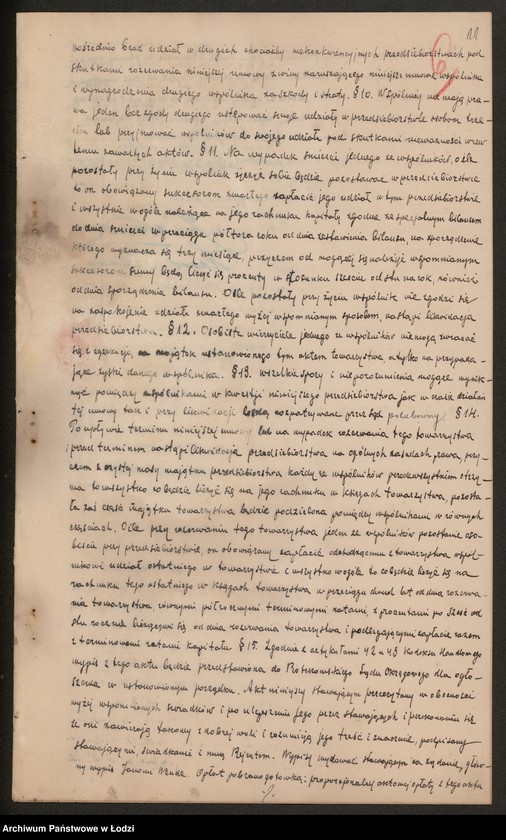 11
pośrednio brać udział w drugich chociażby niekonkurencyjnych przedsiębiorstwach pod
skutkami rozerwania niniejszej umowy z winy naruszającego niniejsze umowę wspólnika
i wynagrodzenia drugiego wspólnika za szkody i straty. § 10. Wspólnicy nie mają pra-
wa jeden bez zgody drugiego ustępować swoje udziały w przedsiębiorstwie osobom trze-
cim lub przyjmować wspólników do swojego udziału pod skutkami nieważności wzglę-
demu zawartych aktów. § 11. Na wypadek śmierci jednego ze wspólników, o ile
pozostały przy życiu wspólnik życzyć sobie będzie pozostawać w przedsiębiorstwie
to on obowiązany sukcesorom zmarłego zapłacić jego udział w tym przedsiębiorstwie
i wszystkie wogóle należące na jego rachunku kapitały zgodnie ze specjalnym bilansem
do dnia śmierci w przeciągu półtora roku od dnia zestawienia bilansu, na sporządzenie
którego wyznacza się trzy miesiące, przyczem od mogącej się należeć wspomnianym
sukcesorom sumy będą liczyć się procenty w stosunku sześć od sta na rok, również
od dnia sporządzenia bilansu. O ile pozostały przy życiu wspólnik nie zgodzi się
na zaspokojenie udziału zmarłego wyżej wspomnianym sposobem, nastąpi likwidacja
przedsiębiorstwa. § 12. Osobiste wierzyciele jednego ze wspólników nie mogą zwracać
się z egzekucją, na majątek ustanowionego tym aktem towarzystwa a tylko na przypada-
jące zyski danego wspólnika. § 13. wszelkie spory i nieporozumienia mogące wynik-
nąć pomiędzy wspólnikami w kwestji niniejszego przedsiębiorstwa jak w czasie działań
tej umowy tak i przy likwidacji będą rozpatrywane przez Sąd polubowny. § 14.
Po upływie terminu niniejszej umowy lub na wypadek rozerwania tego towarzystwa
i przed terminem nastąpi likwidacja przedsiębiorstwa na ogólnych zasadach prawa, przy-
czem z czystej masy majątku przedsiębiorstwa każdy ze wspólników przedewszystkiem otrzy-
ma to wszystko co będzie liczyć się na jego rachunku w księgach towarzystwa, pozosta-
ła zaś część majątku towarzystwa będzie podzielona pomiędzy wspólnikami w równych
częściach. O ile przy rozerwaniu tego towarzystwa jeden ze wspólników pozostanie oso-
biście przy przedsiębiorstwie, on obowiązany zapłacić odchodzącemu z towarzystwa wspól-
nikowi udział ostatniego w towarzystwie i wszystko wogóle to co będzie liczyć się na
rachunku tego ostatniego w księgach towarzystwa w przeciągu dwóch lat od dnia rozerwa-
nia towarzystwa równymi półrocznymi terminowymi ratami z procentami po sześć od
stu rocznie liczącymi się od dnia rozerwania towarzystwa i podlegającymi zapłacie razem
z terminowymi ratami kapitału. § 15. Zgodnie z artykułami 42 i 43 Kodeksu Handlowego
wypis z tego aktu będzie przedstawiona do Piotrkowskiego Sądu Okręgowego dla ogło-
szenia w ustanowionym porządku. Akt niniejszy stawającym przeczytany w obecności
wyżej wspomnianych świadków i po wysłuchaniu jego przez stawających i przekonaniu się
że oni zawierają takowy z dobrej woli i rozumieją jego treść i znaczenie, podpisany
stawającymi, świadkami i mną Rejentem. Wypisy wydawać stawającym na żądanie, głów-
ny wypis Janowi Muke. Opłat pobrano gotówką: proporcjonalnej aktowej opłaty z tego aktu
./.
Archiwum Państwowe w Łodzi